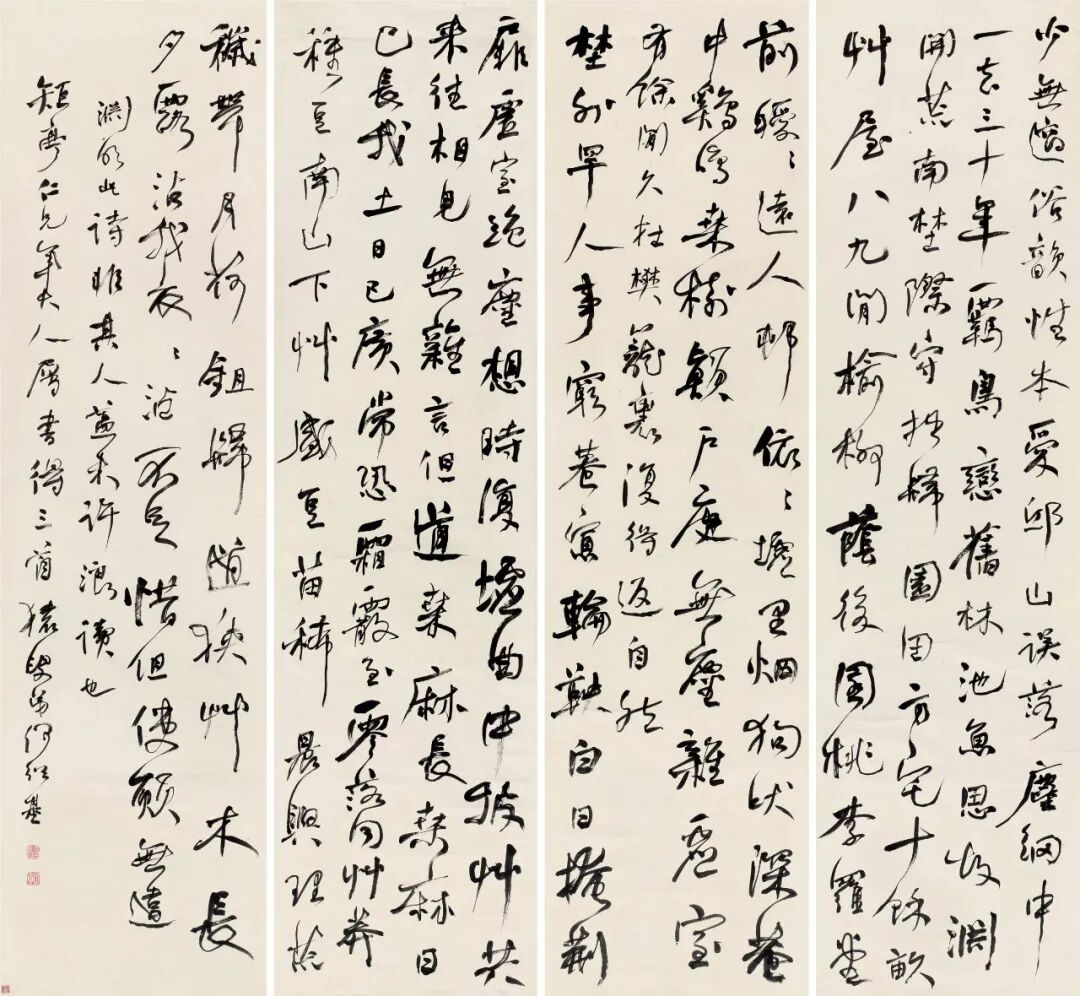 少無適俗韻性本愛邱山誤落塵網中
一去三十年羈鳥戀舊林池魚思故淵
開荒南埜際守拙歸園田方宅十餘畝
艸屋八九間榆柳蔭後園桃李羅堂
前曖〻遠人邨依〻墟里烟狗吠深巷
中鷄鳴桑樹顛戶庭無塵雜虛室
有餘閒久在樊籠裏復得返自然
埜外罕人事窮巷寡輪鞅白日掩荆
扉虛室絶塵想時復墟曲中披艸共
來往相見無雜言但道桑麻長桑麻日
已長我土日已廣常恐霜霰至零落同艸莽
種豆南山下艸盛豆苗稀晨興理荒
穢帶月荷鉏歸道狹艸木長
夕露沾我衣〻沾不足惜但使願無違
淵明此詩非其人蓋未許浪讀也
矩亭仁兄年大人屬書得三首猨叟弟何紹基